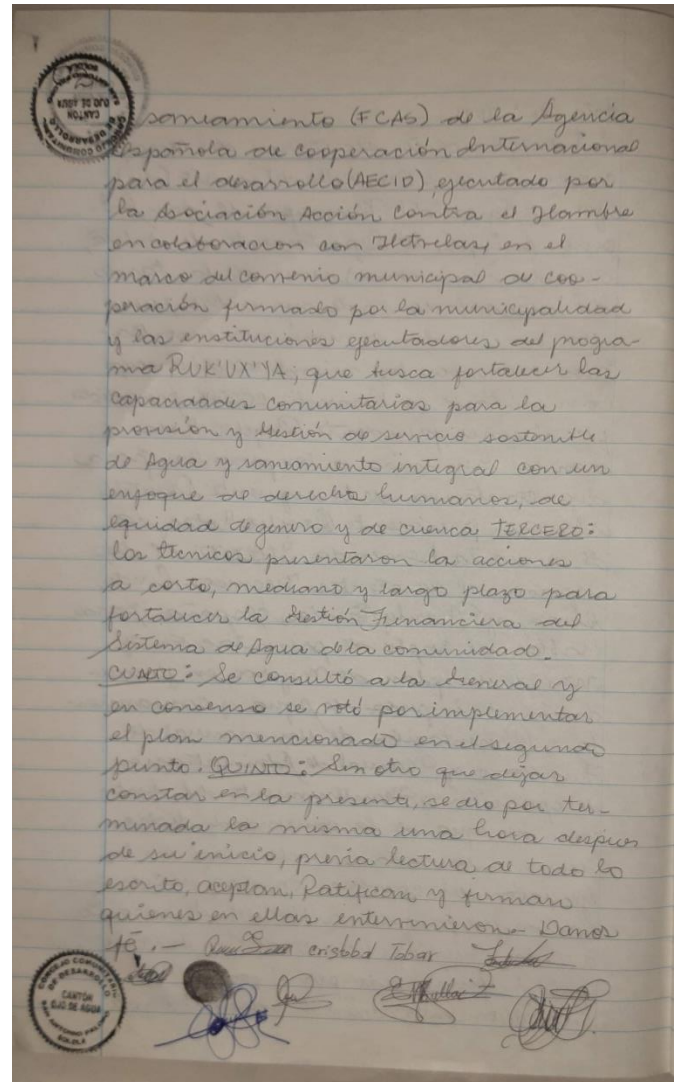 CONSEJO COMUNITARIO
DE DESARROLLO
CANTÓN
OJO DE AGUA
SOLOLÁ
saneamiento (FCAS) de la Agencia
Española de cooperación Internacional
para el desarrollo (AECID), ejecutado por
la Asociación Acción contra el Hambre
en colaboracion con Helvetas, en el
marco del convenio municipal de coo-
peración firmado por la municipalidad
y las instituciones ejecutadores del progra-
ma RUK'UX'YA; que busca fortalecer las
capacidades comunitarias para la
provisión y Gestión de servicio sostenible
de Agua y saneamiento integral con un
enfoque de derecho humanos, de
equidad de genero y de cuenca. TERCERO:
los tecnicos presentaron la acciones
a corto, mediano y largo plazo para
fortalecer la Gestión Financiera del
Sistema de Agua de la comunidad.
CUARTO: Se consultó a la General y
en consenso se votó por implementar
el plan mencionado en el segundo
punto. QUINTO: Sin otro que dejar
constar en la presente, se dio por ter-
minada la misma una hora despues
de su inicio, previa lectura de todo lo
escrito, aceptan, Ratifican y firman
quienes en ellas intervinieron - Damos
fé. - cristobal Tobar
CONSEJO COMUNITARIO
DE DESARROLLO
CANTÓN
OJO DE AGUA
SAN ANTONIO PALOPÓ
SOLOLÁ